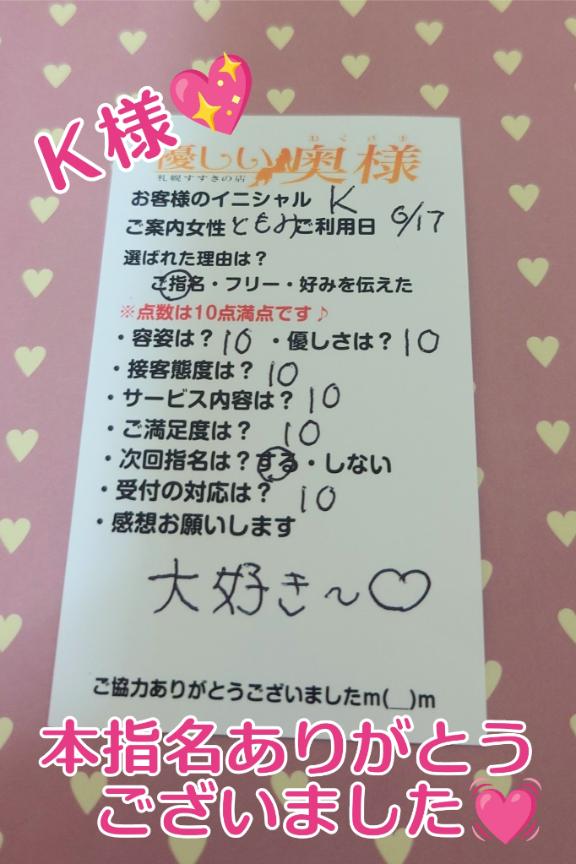 K様💖
優しい奥様
おくさま
札幌すすきの店
お客様のイニシャル K
ご案内女性 ともみ ご利用日 6/17
選ばれた理由は?
ご指名・フリー・好みを伝えた
※点数は10点満点です♪
・容姿は? 10 ・優しさは? 10
・接客態度は? 10
・サービス内容は? 10
・ご満足度は? 10
・次回指名は? する・しない
・受付の対応は? 10
・感想お願いします
大好き〜♡
ご協力ありがとうございましたm(__)m
本指名ありがとう
ございました💓